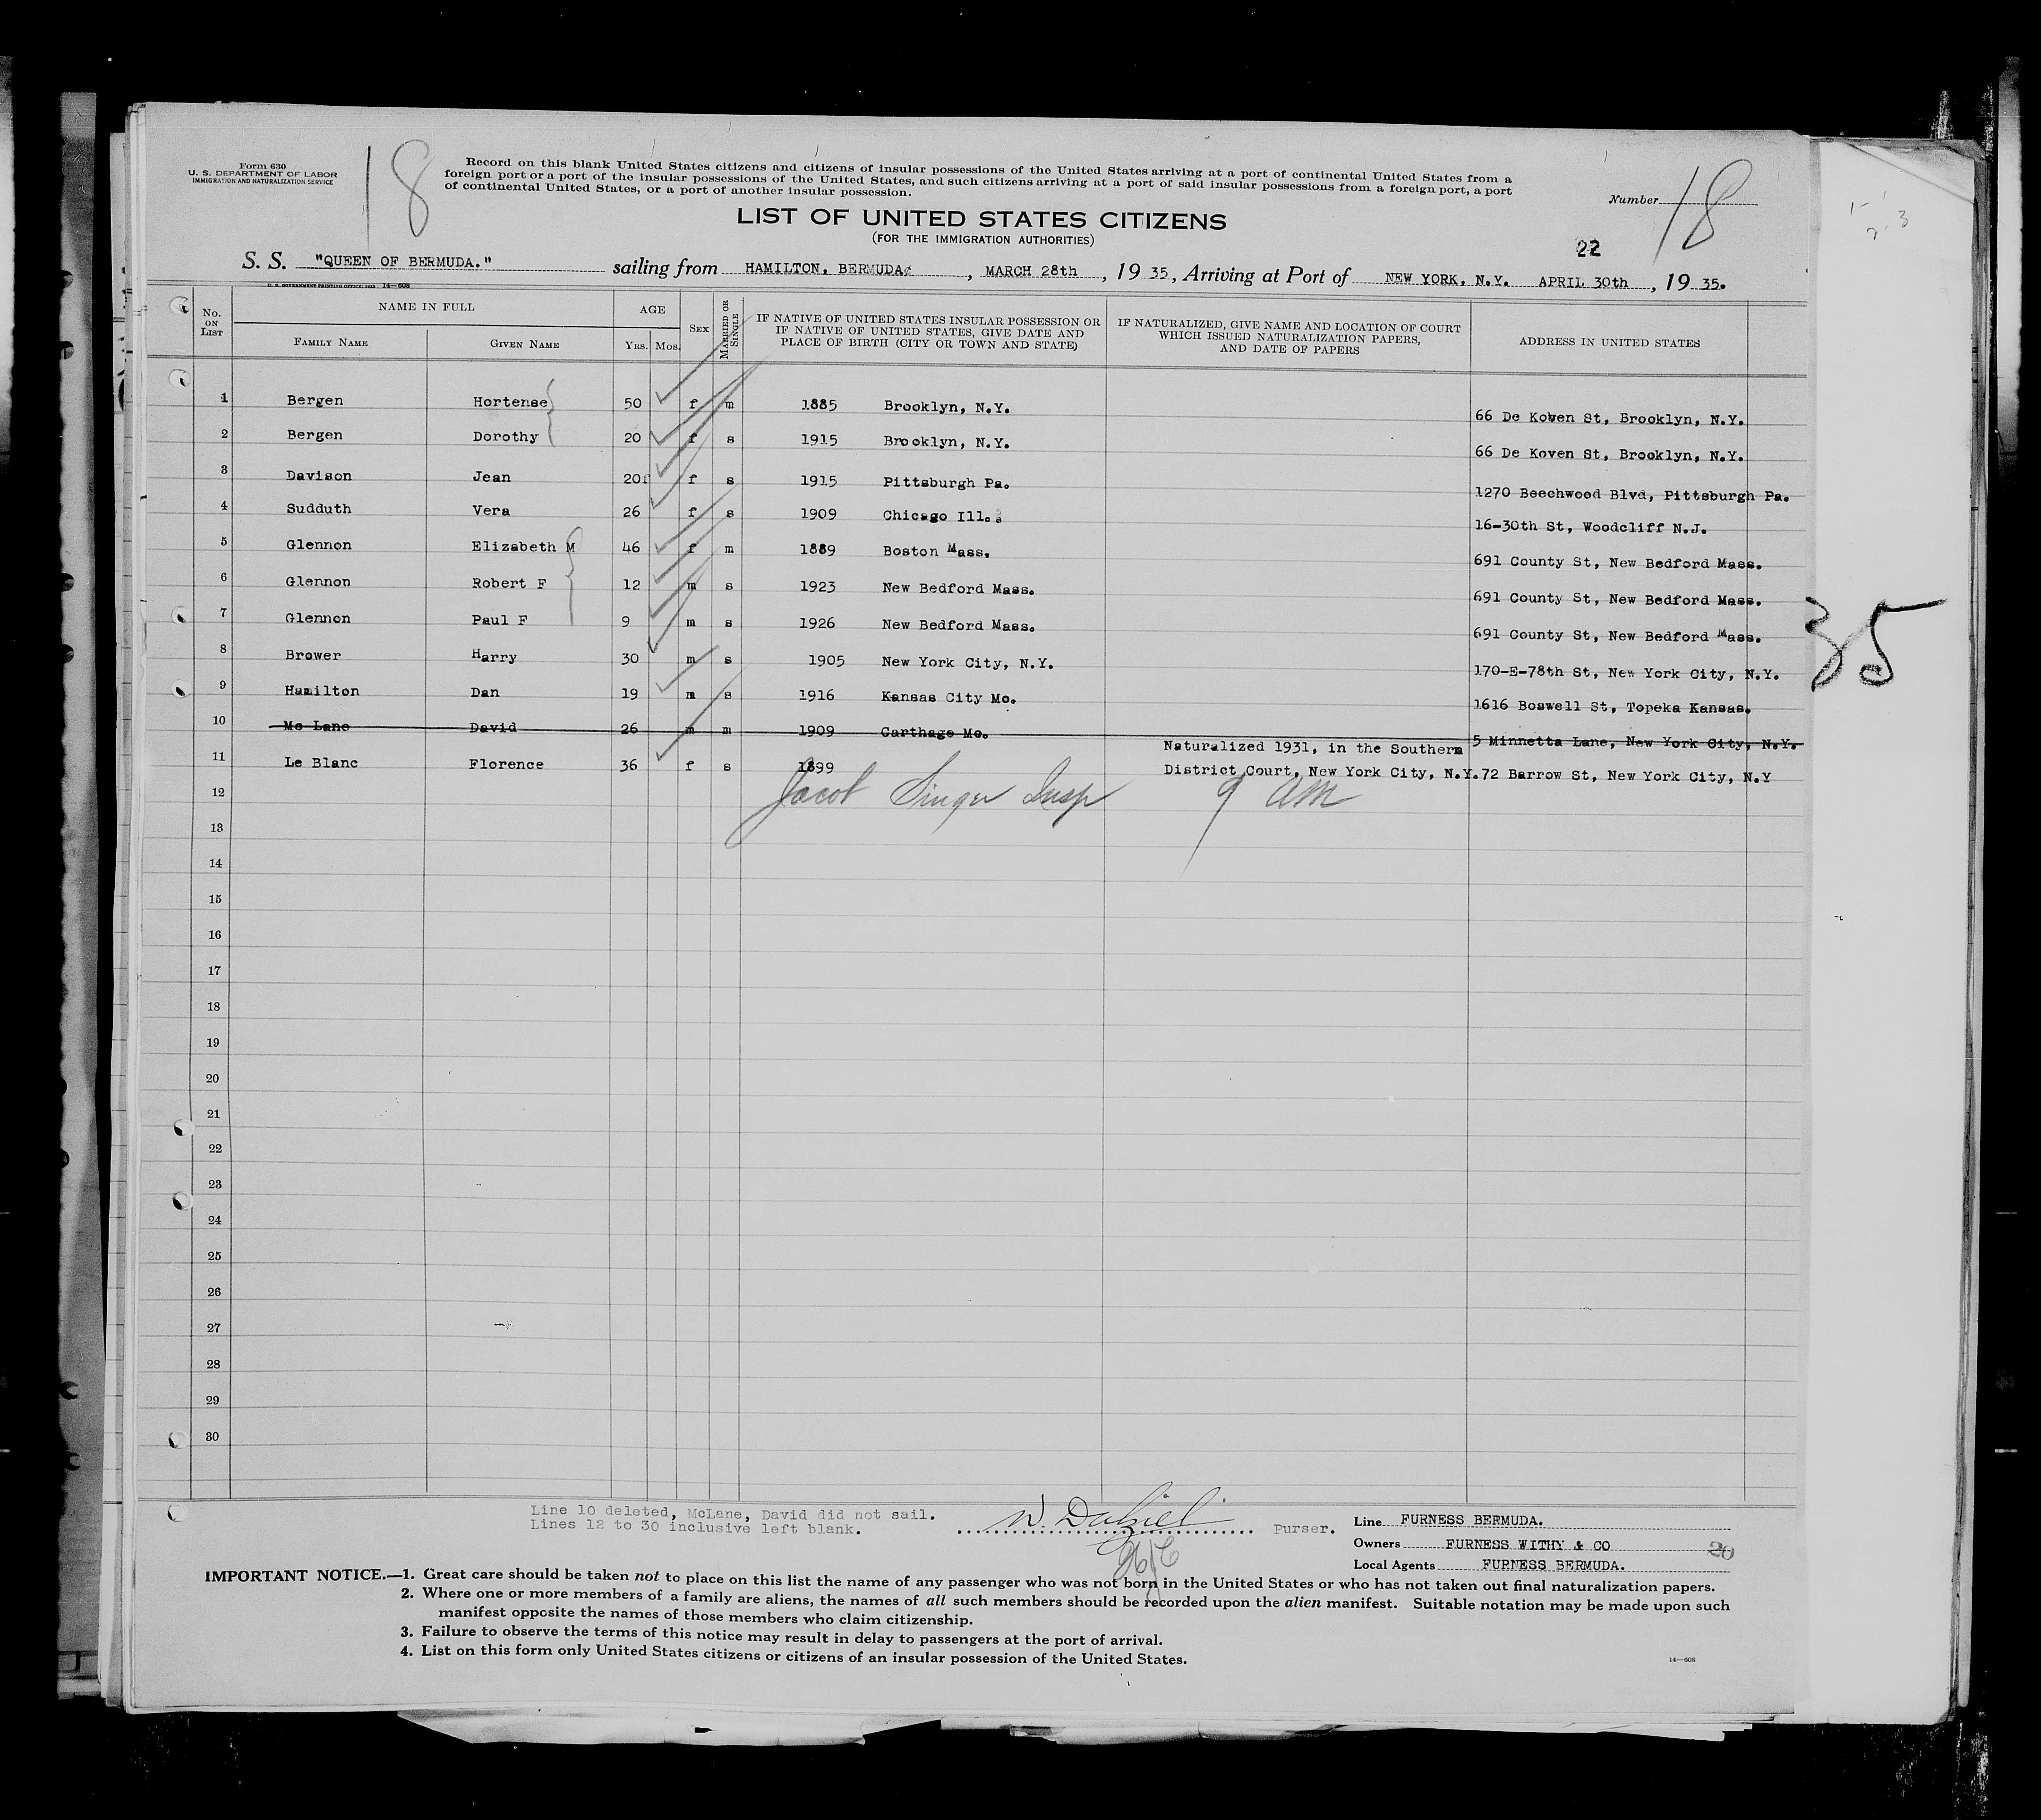 Form 630
U. S. DEPARTMENT OF LABOR
IMMIGRATION AND NATURALIZATION SERVICE
18
Record on this blank United States citizens and citizens of insular possessions of the United States arriving at a port of continental United States from a
foreign port or a port of the insular possessions of the United States, and such citizens arriving at a port of said insular possessions from a foreign port, a port
of continental United States, or a port of another insular possession.
Number 18
LIST OF UNITED STATES CITIZENS
(FOR THE IMMIGRATION AUTHORITIES)
22
S. S. "QUEEN OF BERMUDA." sailing from HAMILTON, BERMUDA, MARCH 28th, 1935, Arriving at Port of NEW YORK, N.Y. APRIL 30th, 1935.
U. S. GOVERNMENT PRINTING OFFICE: 14—608
No. ON LIST NAME IN FULL AGE SEX MARRIED OR SINGLE IF NATIVE OF UNITED STATES INSULAR POSSESSION OR IF NATIVE OF UNITED STATES, GIVE DATE AND PLACE OF BIRTH (CITY OR TOWN AND STATE) IF NATURALIZED, GIVE NAME AND LOCATION OF COURT WHICH ISSUED NATURALIZATION PAPERS, AND DATE OF PAPERS ADDRESS IN UNITED STATES
FAMILY NAME GIVEN NAME YRS. MOS.
1 Bergen Hortense 50 f m 1885 Brooklyn, N.Y. 66 De Koven St, Brooklyn, N.Y.
2 Bergen Dorothy 20 f s 1915 Brooklyn, N.Y. 66 De Koven St, Brooklyn, N.Y.
3 Davison Jean 20 f s 1915 Pittsburgh Pa. 1270 Beechwood Blvd, Pittsburgh Pa.
4 Sudduth Vera 26 f s 1909 Chicago Ill. 16-30th St, Woodcliff N.J.
5 Glennon Elizabeth M 46 f m 1889 Boston Mass. 691 County St, New Bedford Mass.
6 Glennon Robert F 12 m s 1923 New Bedford Mass. 691 County St, New Bedford Mass.
7 Glennon Paul F 9 m s 1926 New Bedford Mass. 691 County St, New Bedford Mass.
8 Brower Harry 30 m s 1905 New York City, N.Y. 170-E-78th St, New York City, N.Y.
9 Hamilton Dan 19 m s 1916 Kansas City Mo. 1616 Boswell St, Topeka Kansas.
10 Mc Lane David 26 m m 1909 Carthage Mo. 5 Minnetta Lane, New York City, N.Y.
Naturalized 1931, in the Southern
11 Le Blanc Florence 36 f s 1899 District Court, New York City, N.Y. 72 Barrow St, New York City, N.Y
12 Jacob Singer Insp 9 AM
13
14
15
16
17
18
19
20
21
22
23
24
25
26
27
28
29
30
35
Line 10 deleted, McLane, David did not sail.
Lines 12 to 30 inclusive left blank.
W. Dalziel Purser.
Line FURNESS BERMUDA.
Owners FURNESS WITHY & CO
20
Local Agents FURNESS BERMUDA.
IMPORTANT NOTICE.—1. Great care should be taken not to place on this list the name of any passenger who was not born in the United States or who has not taken out final naturalization papers.
2. Where one or more members of a family are aliens, the names of all such members should be recorded upon the alien manifest. Suitable notation may be made upon such
manifest opposite the names of those members who claim citizenship.
3. Failure to observe the terms of this notice may result in delay to passengers at the port of arrival.
4. List on this form only United States citizens or citizens of an insular possession of the United States.
14—608